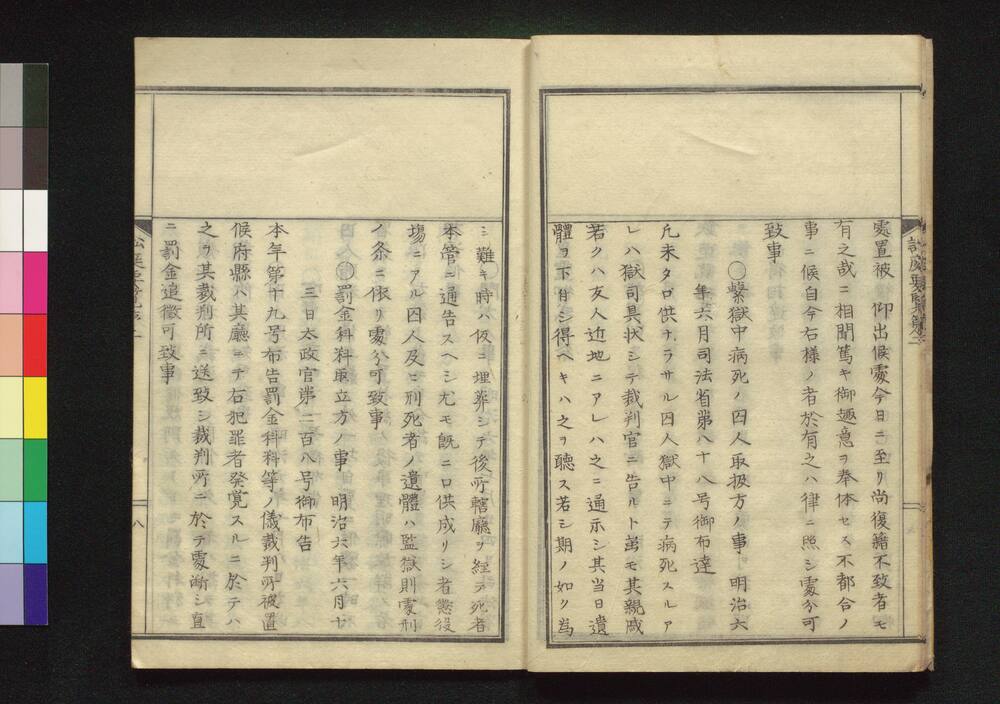 處置被　仰出候處今日ニ至リ尚復籍不致者モ
有之哉ニ相聞篤キ御趣意ヲ奉体セス不都合ノ
事ニ候自今右樣ノ者於有之ハ律ニ照シ處分可
致事
○繫獄中病死ノ囚人取扱方ノ事　明治六
年六月司法省第八十八号御布達
凡未タ口供ナラサル囚人獄中ニテ病死スルア
レハ獄司具状シテ裁判官ニ告ルト虽モ其親戚
若クハ友人近地ニアレハ之ニ通示シ其当日遺
體ヲ下付シ得ヘキハ之ヲ聴ス若シ期ノ如ク為
シ難キ時ハ仮ニ埋葬シテ後所轄廳ヲ経テ死者
本管ニ通告スヘシ尤モ既ニ口供成リシ者懲役
場ニアル囚人及ヒ刑死者ノ遺體ハ監獄則處刑
ノ条ニ依リ處分可致事
○罰金科料取立方ノ事　明治六年六月十
三日太政官第二百八号御布告
本年第十九号布告罰金科料等ノ儀裁判所被置
候府縣ハ其廳ニテ右犯罪者発覚スルニ於テハ
之ヲ其裁判所ニ送致シ裁判所ニ於テ處断シ直
ニ罰金追徴可致事
八